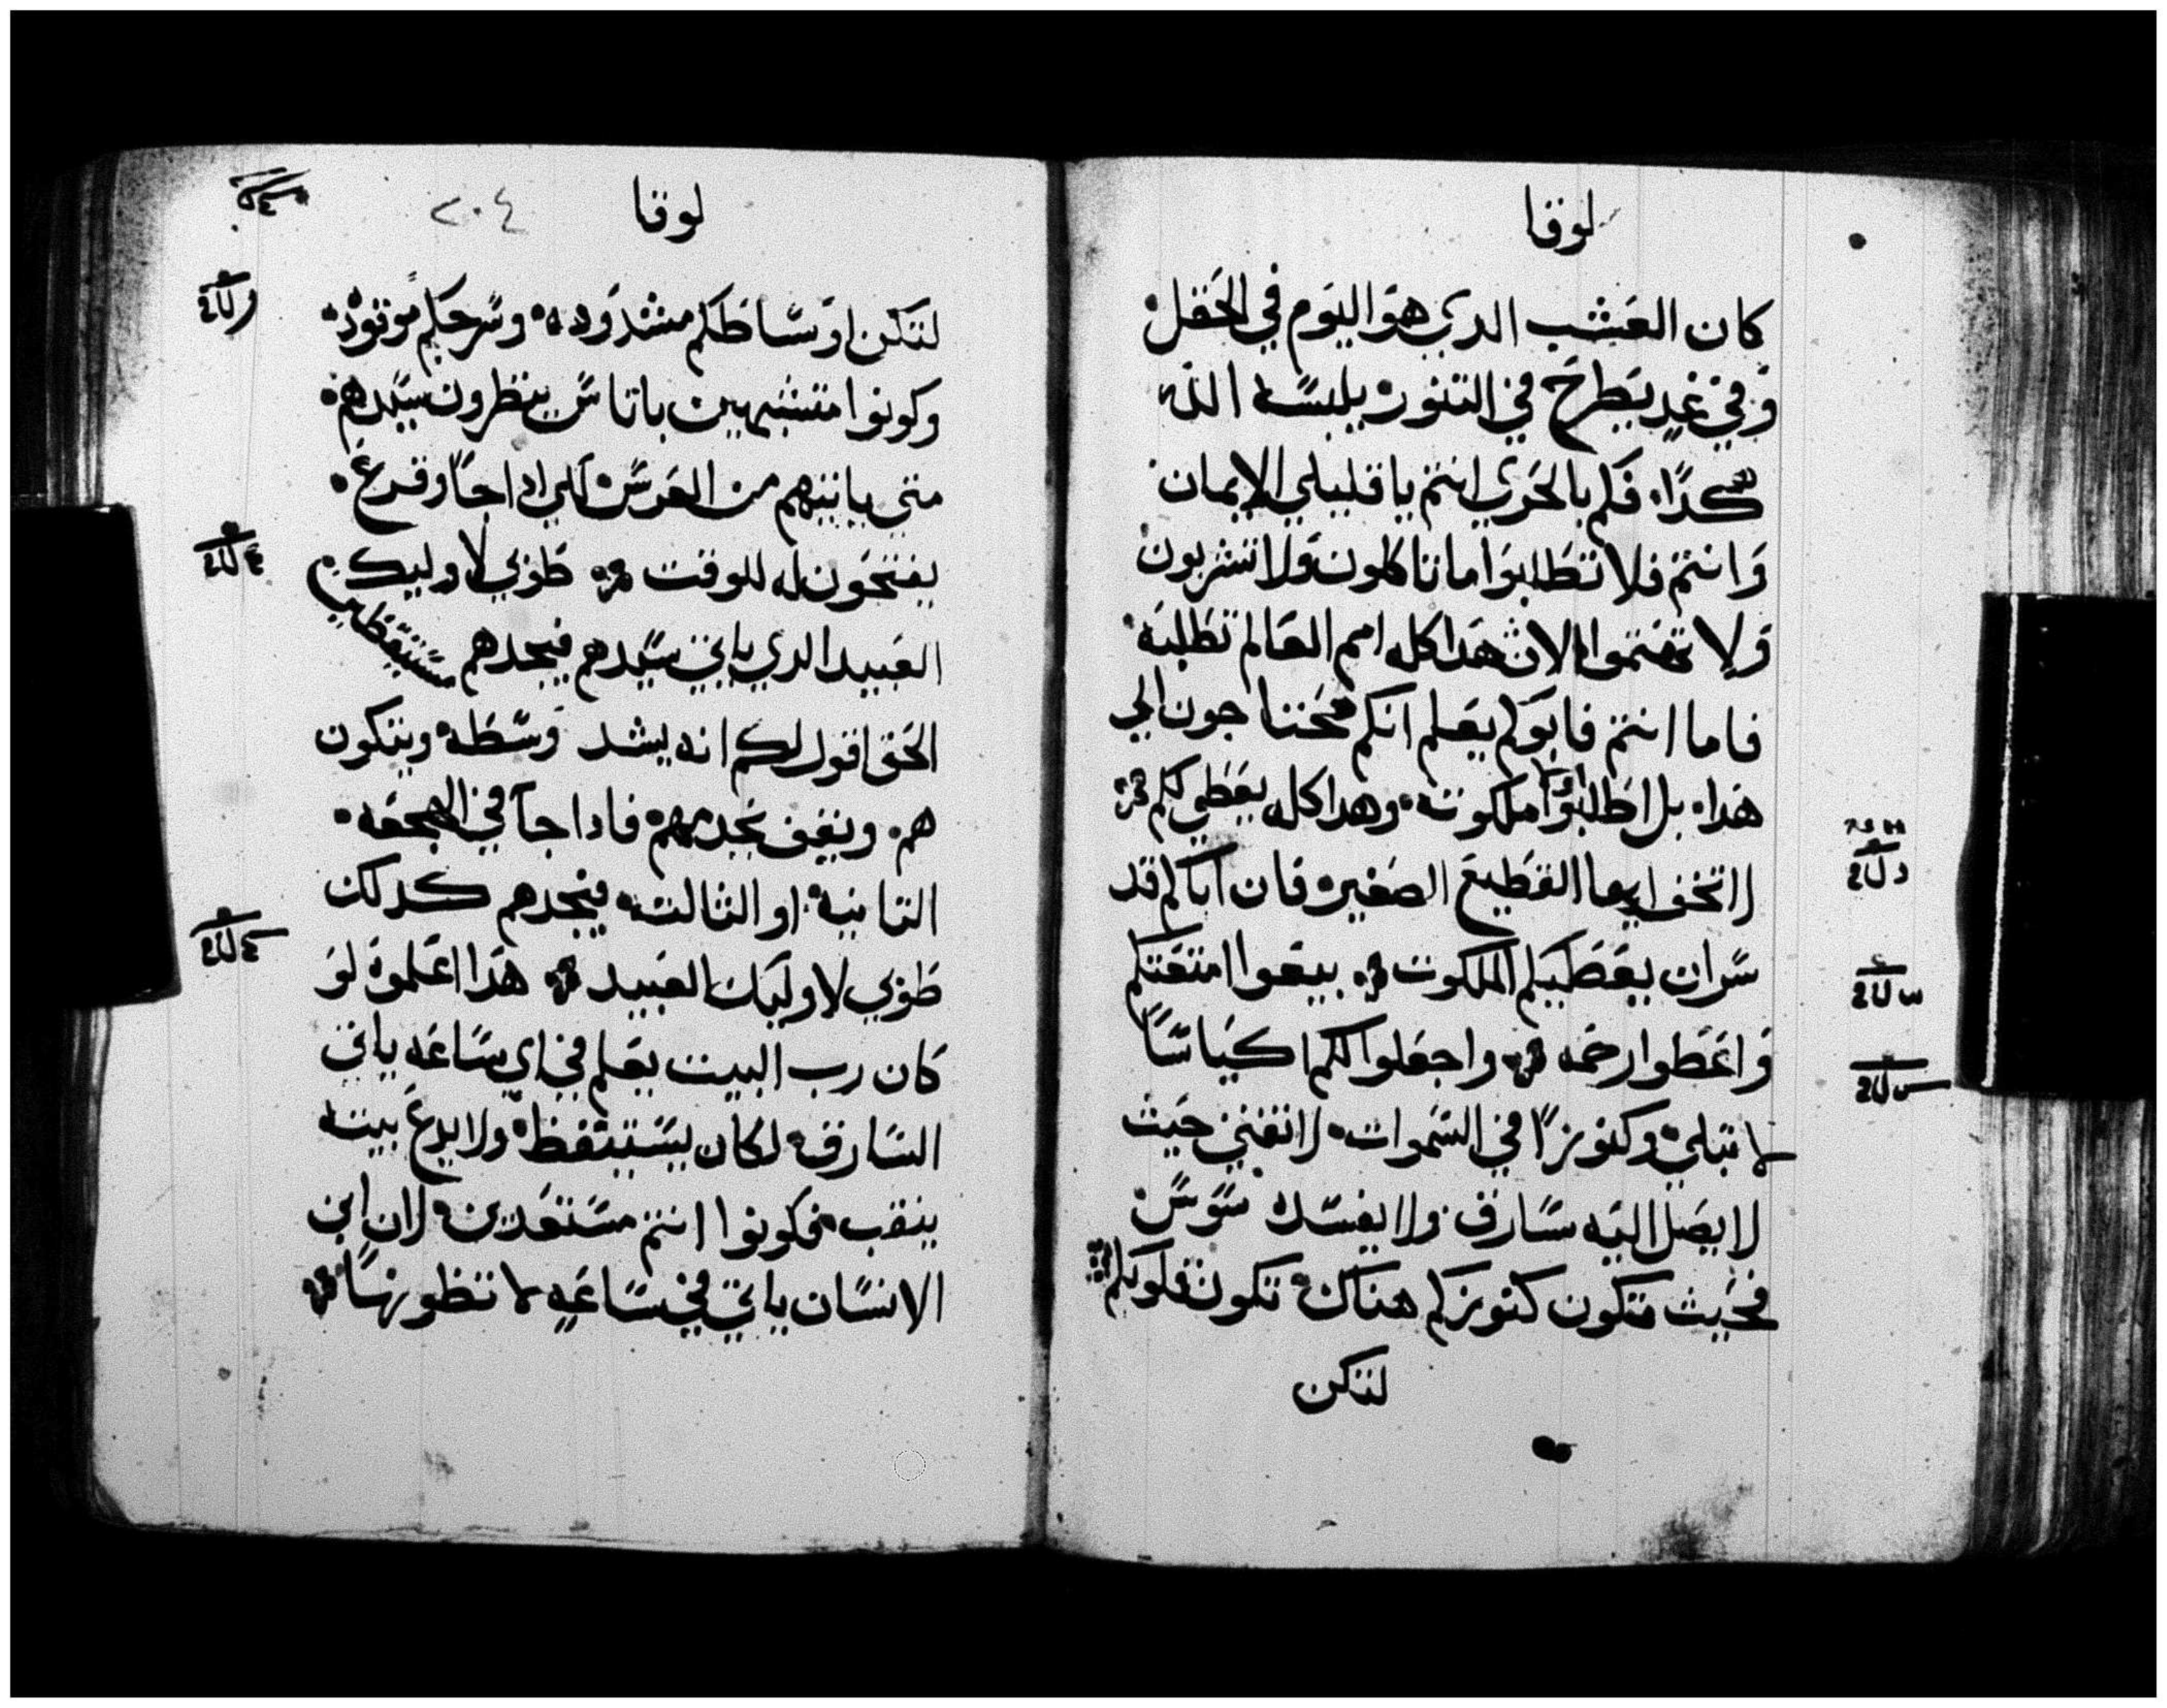 لوقا
كان العشب الدي هو اليوم في الحقل
وفي غد يطرح في التنور يلبسه الله
هكدا، فكم بالحري انتم يا قليلي الايمان
وانتم فلا تطلبوا ما تاكلون ولا تشربون
ولا تهتموا لان هدا كله امم العالم تطلبه
فاما انتم فابوكم يعلم انكم محتاجون الي
هدا، بل اطلبوا ملكوته وهدا كله يعطي لكم
لا تخف ايها القطيع الصغير فان اباكم قد
سر ان يعطيكم الملكوت بيعوا امتعتكم
واعطوا رحمه واجعلوا لكم اكياسا
لا تبلي وكنوزا في السموات لا تفني حيث
لا يصل اليه سارق ولا يفسد سوس
فحيث تكون كنوزكم هناك تكون قلوبكم
لتكن
لوقا
٢٠٤
لتكن اوساطكم مشدوده وسرجكم موقوده
وكونوا متشبهين باناس ينظرون سيدهم
متي ياتيهم من العرس لكي ادا جا وقرع
يفتحون له للوقت طوبي لاوليك
العبيد الدي ياتي سيدهم فيجدهم مستيقظين
الحق اقول لكم انه يشد وسطه ويتكون
هم ويقف يخدمهم فادا جا في الهجعه
التانيه او التالته فيجدهم كدلك
طوبي لاوليك العبيد هدا اعلموه لو
كان رب البيت يعلم في اي ساعه ياتي
السارق لكان يستيقظ ولا يدع بيته
ينقب فكونوا انتم مستعدين لان ابن
الانسان ياتي في ساعه لا تظنونها